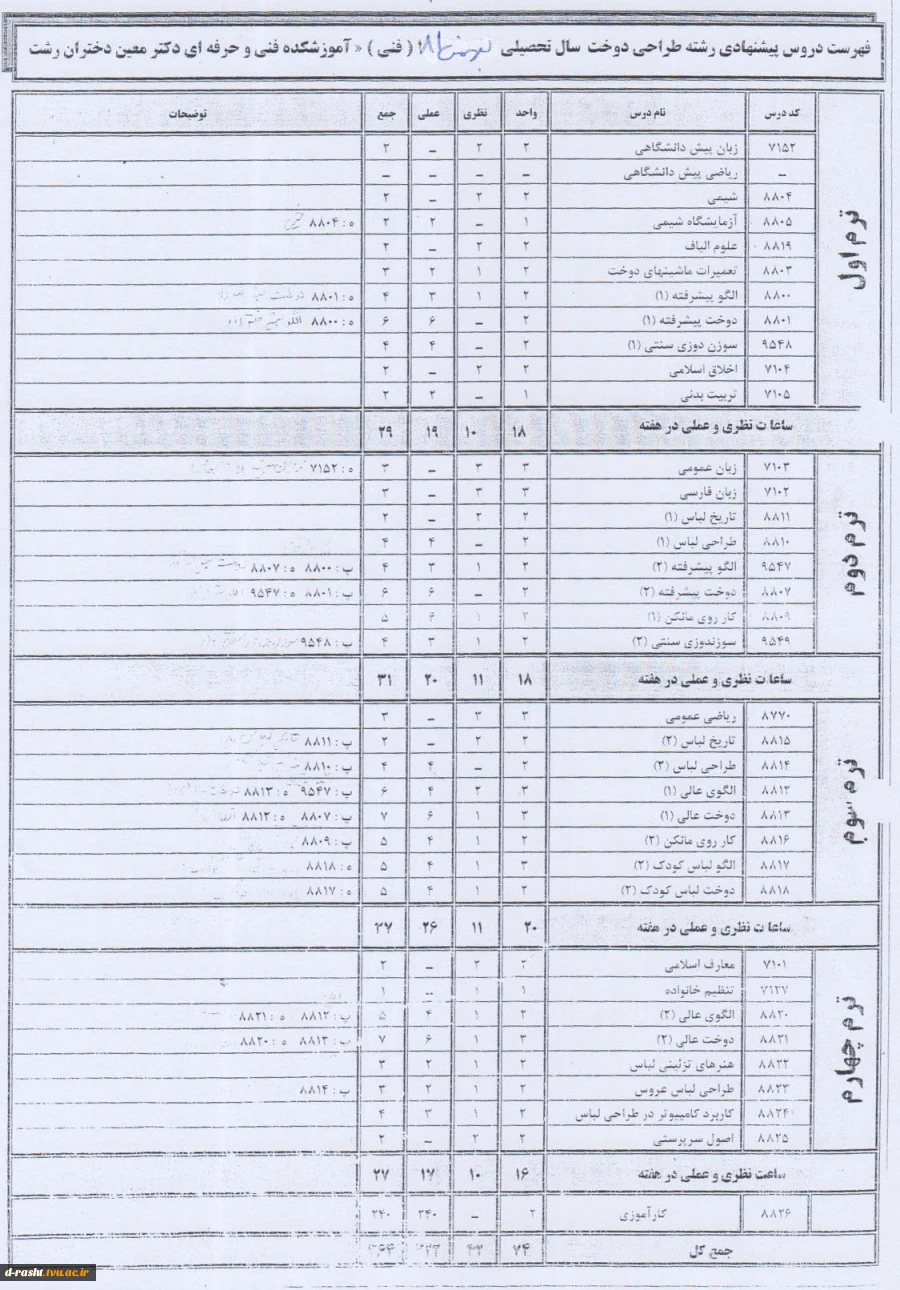 فهرست دروس پیشنهادی رشته طراحی دوخت سال تحصیلی ( فنی ) « آموزشکده فنی و حرفه ای دکتر معین دختران رشت
کد درس نام درس واحد نظری عملی جمع توضیحات
ترم اول
۷۱۵۲ زبان پیش دانشگاهی ۲ ۲ – ۲
– ریاضی پیش دانشگاهی – – – –
۸۸۰۴ شیمی ۲ ۲ – ۲
۸۸۰۵ آزمایشگاه شیمی ۱ – ۲ ۲ ه : ۸۸۰۴
۸۸۱۹ علوم الیاف ۲ ۲ – ۲
۸۸۰۳ تعمیرات ماشینهای دوخت ۲ ۱ ۲ ۳
۸۸۰۰ الگو پیشرفته (۱) ۲ ۱ ۳ ۴ ه : ۸۸۰۱
۸۸۰۱ دوخت پیشرفته (۱) ۲ – ۶ ۶ ه : ۸۸۰۰
۹۵۴۸ سوزن دوزی سنتی (۱) ۲ – ۴ ۴
۷۱۰۴ اخلاق اسلامی ۲ ۲ – ۲
۷۱۰۵ تربیت بدنی ۱ – ۲ ۲
ساعات نظری و عملی در هفته ۱۸ ۱۰ ۱۹ ۲۹
ترم دوم
۷۱۰۳ زبان عمومی ۳ ۳ – ۳ ه : ۷۱۵۲
۷۱۰۲ زبان فارسی ۳ ۳ – ۳
۸۸۱۱ تاریخ لباس (۱) ۲ ۲ – ۲
۸۸۱۰ طراحی لباس (۱) ۲ – ۴ ۴
۹۵۴۷ الگو پیشرفته (۲) ۲ ۱ ۳ ۴ پ : ۸۸۰۰ ه : ۸۸۰۷
۸۸۰۷ دوخت پیشرفته (۲) ۲ – ۶ ۶ پ : ۸۸۰۱ ه : ۹۵۴۷
۸۸۰۹ کار روی مانکن (۱) ۱ ۵
۹۵۴۹ سوزندوزی سنتی (۲) ۲ ۱ ۳ ۴ پ : ۹۵۴۸
ساعات نظری و عملی در هفته ۱۸ ۱۱ ۲۰ ۳۱
ترم سوم
۸۷۷۰ ریاضی عمومی ۳ ۳ – ۳
۸۸۱۵ تاریخ لباس (۲) ۲ ۲ – ۲ پ : ۸۸۱۱
۸۸۱۴ طراحی لباس (۲) ۲ – ۴ ۴ پ : ۸۸۱۰
۸۸۱۲ الگوی عالی (۱) ۳ ۲ ۴ ۶ پ : ۹۵۴۷ ه : ۸۸۱۳
۸۸۱۳ دوخت عالی (۱) ۳ ۱ ۶ ۷ پ : ۸۸۰۷ ه : ۸۸۱۲
۸۸۱۶ کار روی مانکن (۲) ۲ ۱ ۴ ۵ پ : ۸۸۰۹
۸۸۱۷ الگو لباس کودک (۲) ۳ ۱ ۴ ۵ ه : ۸۸۱۸
۸۸۱۸ دوخت لباس کودک (۲) ۲ ۱ ۴ ۵ ه : ۸۸۱۷
ساعات نظری و عملی در هفته ۲۰ ۱۱ ۲۶ ۳۷
ترم چهارم
۷۱۰۱ معارف اسلامی ۲ ۲ – ۲
۷۱۲۷ تنظیم خانواده ۱ ۱ – ۱
۸۸۲۰ الگوی عالی (۲) ۲ ۱ ۴ ۵ پ : ۸۸۱۲ ه : ۸۸۲۱
۸۸۲۱ دوخت عالی (۲) ۳ ۱ ۶ ۷ پ : ۸۸۱۳ ه : ۸۸۲۰
۸۸۲۲ هنرهای تزئینی لباس ۲ ۱ ۲ ۳
۸۸۲۳ طراحی لباس عروس ۲ ۱ ۲ ۳ پ : ۸۸۱۴
۸۸۲۴ کاربرد کامپیوتر در طراحی لباس ۲ ۱ ۳ ۴
۸۸۲۵ اصول سرپرستی ۲ ۲ – ۲
ساعت نظری و عملی در هفته ۱۶ ۱۰ ۱۷ ۲۷
۸۸۲۶ کارآموزی ۲ – ۲۴۰ ۲۴۰
جمع کل ۷۴
d-rasht.tvu.ac.ir